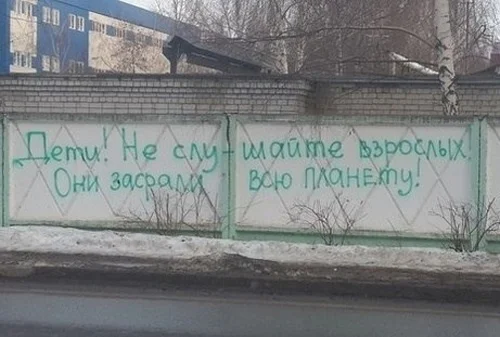 Дети! Не слу-шайте взрослых!
Они засрали всю планету!